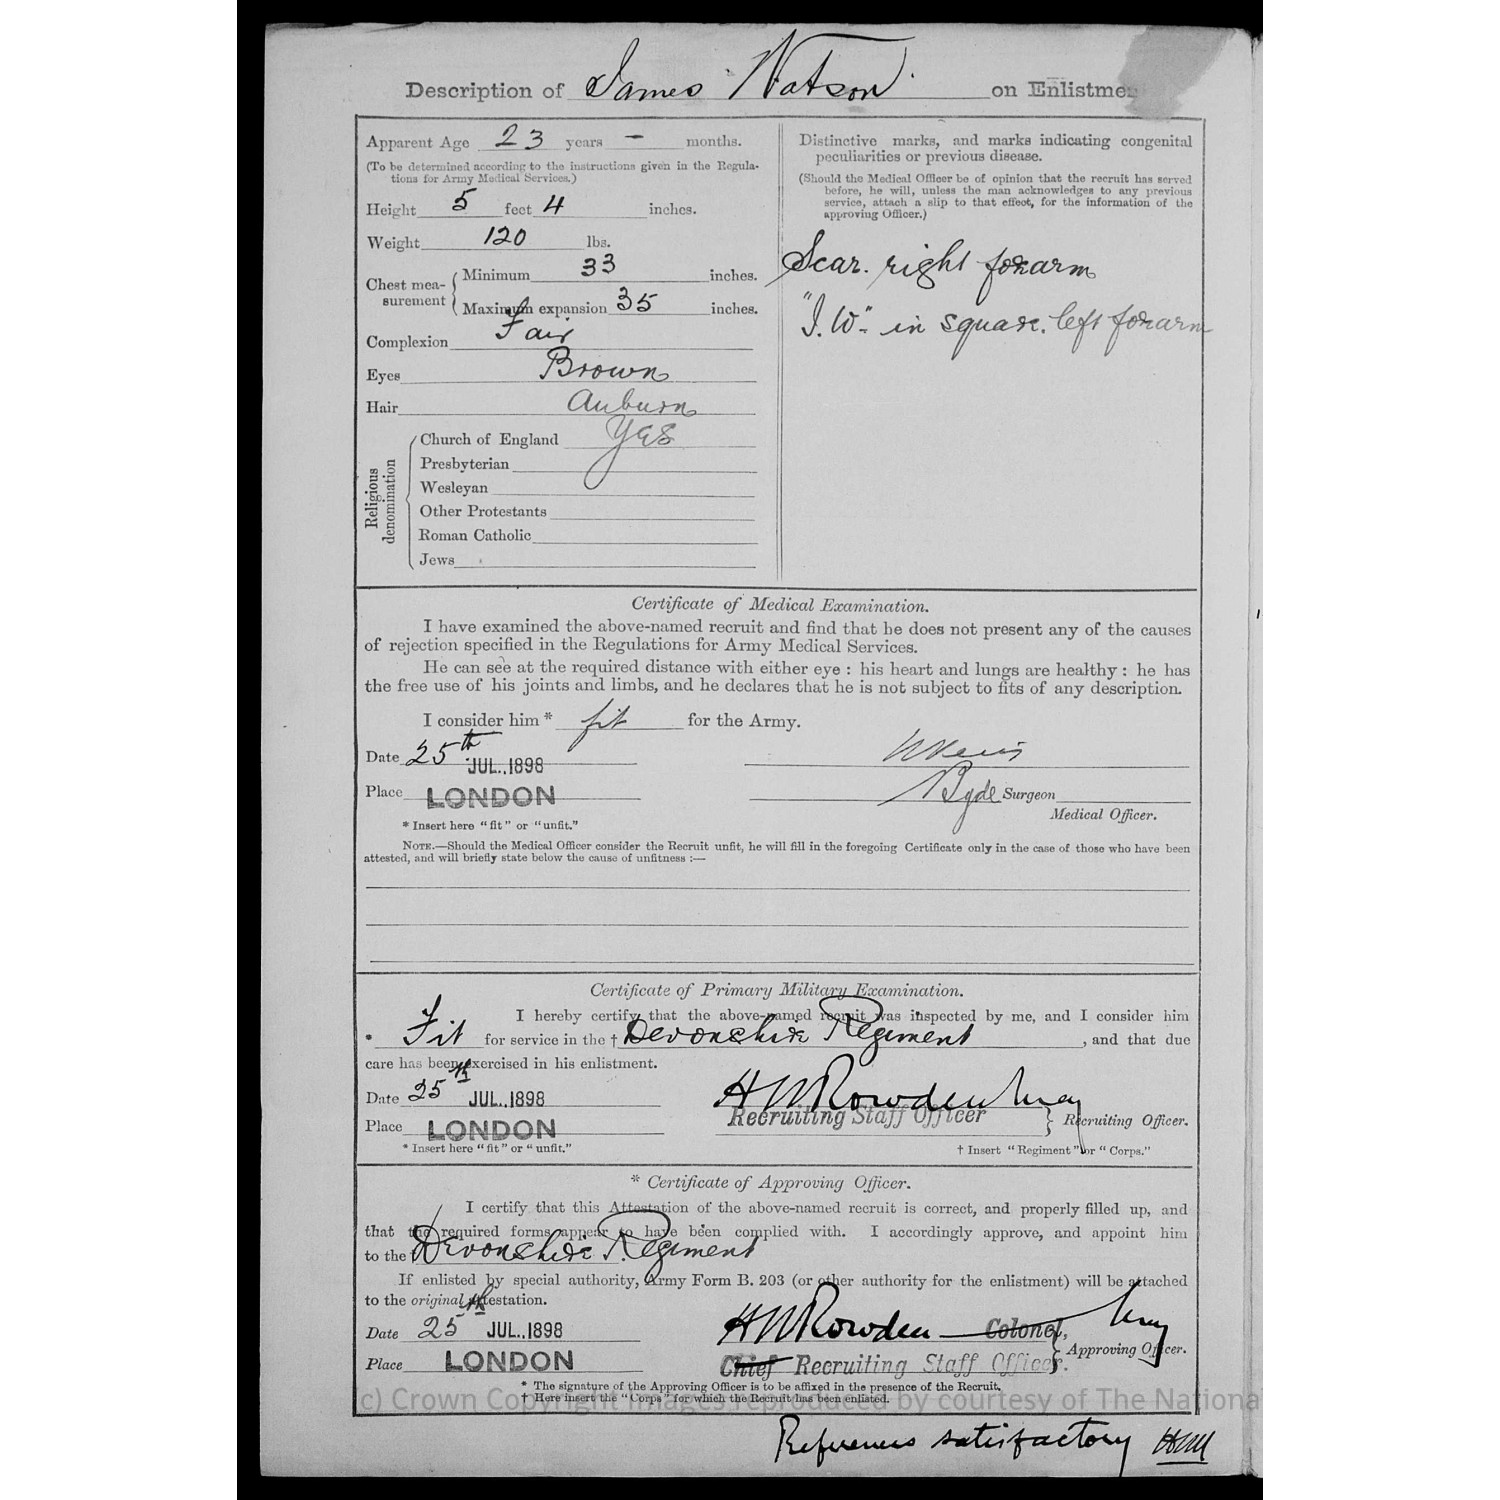 Description of James Watson on Enlistme
Apparent Age 23 years – months.
(To be determined according to the instructions given in the Regula-
tions for Army Medical Services.)
Height 5 feet 4 inches.
Weight 120 lbs.
Chest mea-
surement
Minimum 33 inches.
Maximum expansion 35 inches.
Complexion Fair
Eyes Brown
Hair Auburn
Religious
denomination
Church of England Yes
Presbyterian
Wesleyan
Other Protestants
Roman Catholic
Jews
Distinctive marks, and marks indicating congenital
peculiarities or previous disease.
(Should the Medical Officer be of opinion that the recruit has served
before, he will, unless the man acknowledges to any previous
service, attach a slip to that effect, for the information of the
approving Officer.)
Scar. right forearm
"J.W". in square. left forearm
Certificate of Medical Examination.
I have examined the above-named recruit and find that he does not present any of the causes
of rejection specified in the Regulations for Army Medical Services.
He can see at the required distance with either eye : his heart and lungs are healthy : he has
the free use of his joints and limbs, and he declares that he is not subject to fits of any description.
I consider him * fit for the Army.
Date 25th JUL..1898
Place LONDON
Surgeon
Medical Officer.
* Insert here "fit" or "unfit."
NOTE.—Should the Medical Officer consider the Recruit unfit, he will fill in the foregoing Certificate only in the case of those who have been
attested, and will briefly state below the cause of unfitness :—
Certificate of Primary Military Examination.
I hereby certify that the above-named recruit was inspected by me, and I consider him
* Fit for service in the † Devonshire Regiment, and that due
care has been exercised in his enlistment.
Date 25th JUL..1898
Place LONDON
H M Rowden
Recruiting Staff Officer
Recruiting Officer.
* Insert here "fit" or "unfit."
† Insert "Regiment" or "Corps."
* Certificate of Approving Officer.
I certify that this Attestation of the above-named recruit is correct, and properly filled up, and
that the required forms appear to have been complied with. I accordingly approve, and appoint him
to the † Devonshire Regiment
If enlisted by special authority, Army Form B. 203 (or other authority for the enlistment) will be attached
to the original attestation.
Date 25th JUL..1898
Place LONDON
H M Rowden Colonel,
Chief Recruiting Staff Officer.
Approving Officer.
* The signature of the Approving Officer is to be affixed in the presence of the Recruit.
† Here insert the "Corps" for which the Recruit has been enlisted.
c) Crown Copyright Images reproduced by courtesy of The Nationa
References satisfactory